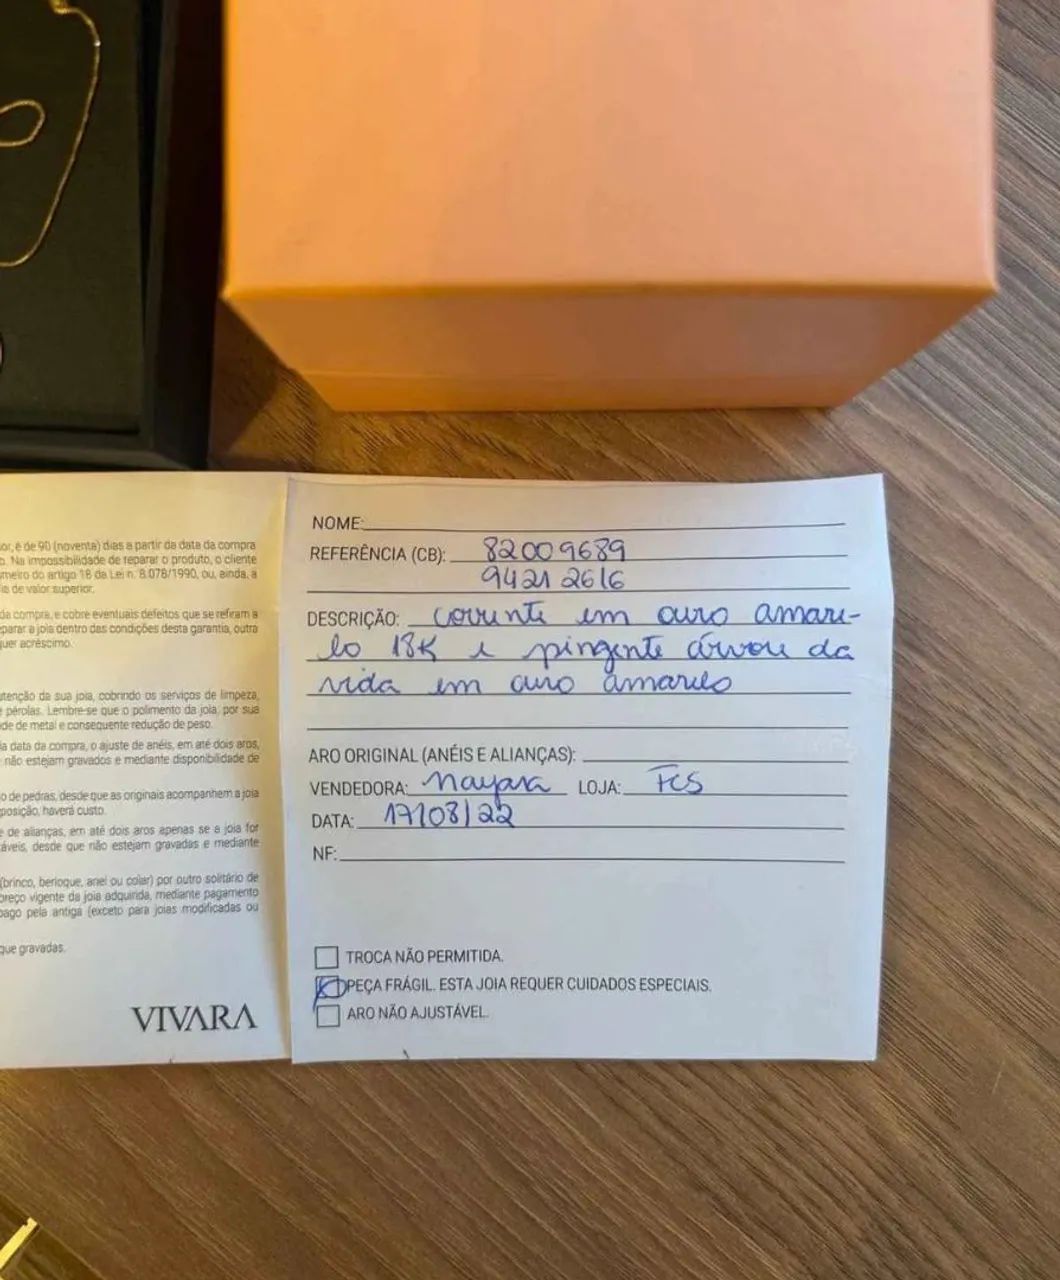 or, é de 90 (noventa) dias a partir da data da compra
o. Na impossibilidade de reparar o produto, o cliente
meiro do artigo 18 da Lei n. 8.078/1990, ou, ainda, a
de valor superior.
da compra, e cobre eventuais defeitos que se refiram a
parar a joia dentro das condições desta garantia, outra
quer acréscimo.
utenção da sua joia, cobrindo os serviços de limpeza,
pérolas. Lembre-se que o polimento da joia, por sua
de de metal e consequente redução de peso.
a data da compra, o ajuste de anéis, em até dois aros,
não estejam gravados e mediante disponibilidade de
o de pedras, desde que as originais acompanhem a joia
posição, haverá custo.
e de alianças, em até dois aros apenas se a joia for
táveis, desde que não estejam gravadas e mediante
(brinco, berloque, anel ou colar) por outro solitário de
preço vigente da joia adquirida, mediante pagamento
pago pela antiga (exceto para joias modificadas ou
que gravadas.
VIVARA
NOME:
REFERÊNCIA (CB): 82009689
94212616
DESCRIÇÃO: corrente em ouro amare-
lo 18K e pingente árvore da
vida em ouro amarelo
ARO ORIGINAL (ANÉIS E ALIANÇAS):
VENDEDORA: Nayara LOJA: FCS
DATA: 17/08/22
NF:
TROCA NÃO PERMITIDA.
PEÇA FRÁGIL. ESTA JOIA REQUER CUIDADOS ESPECIAIS.
ARO NÃO AJUSTÁVEL.